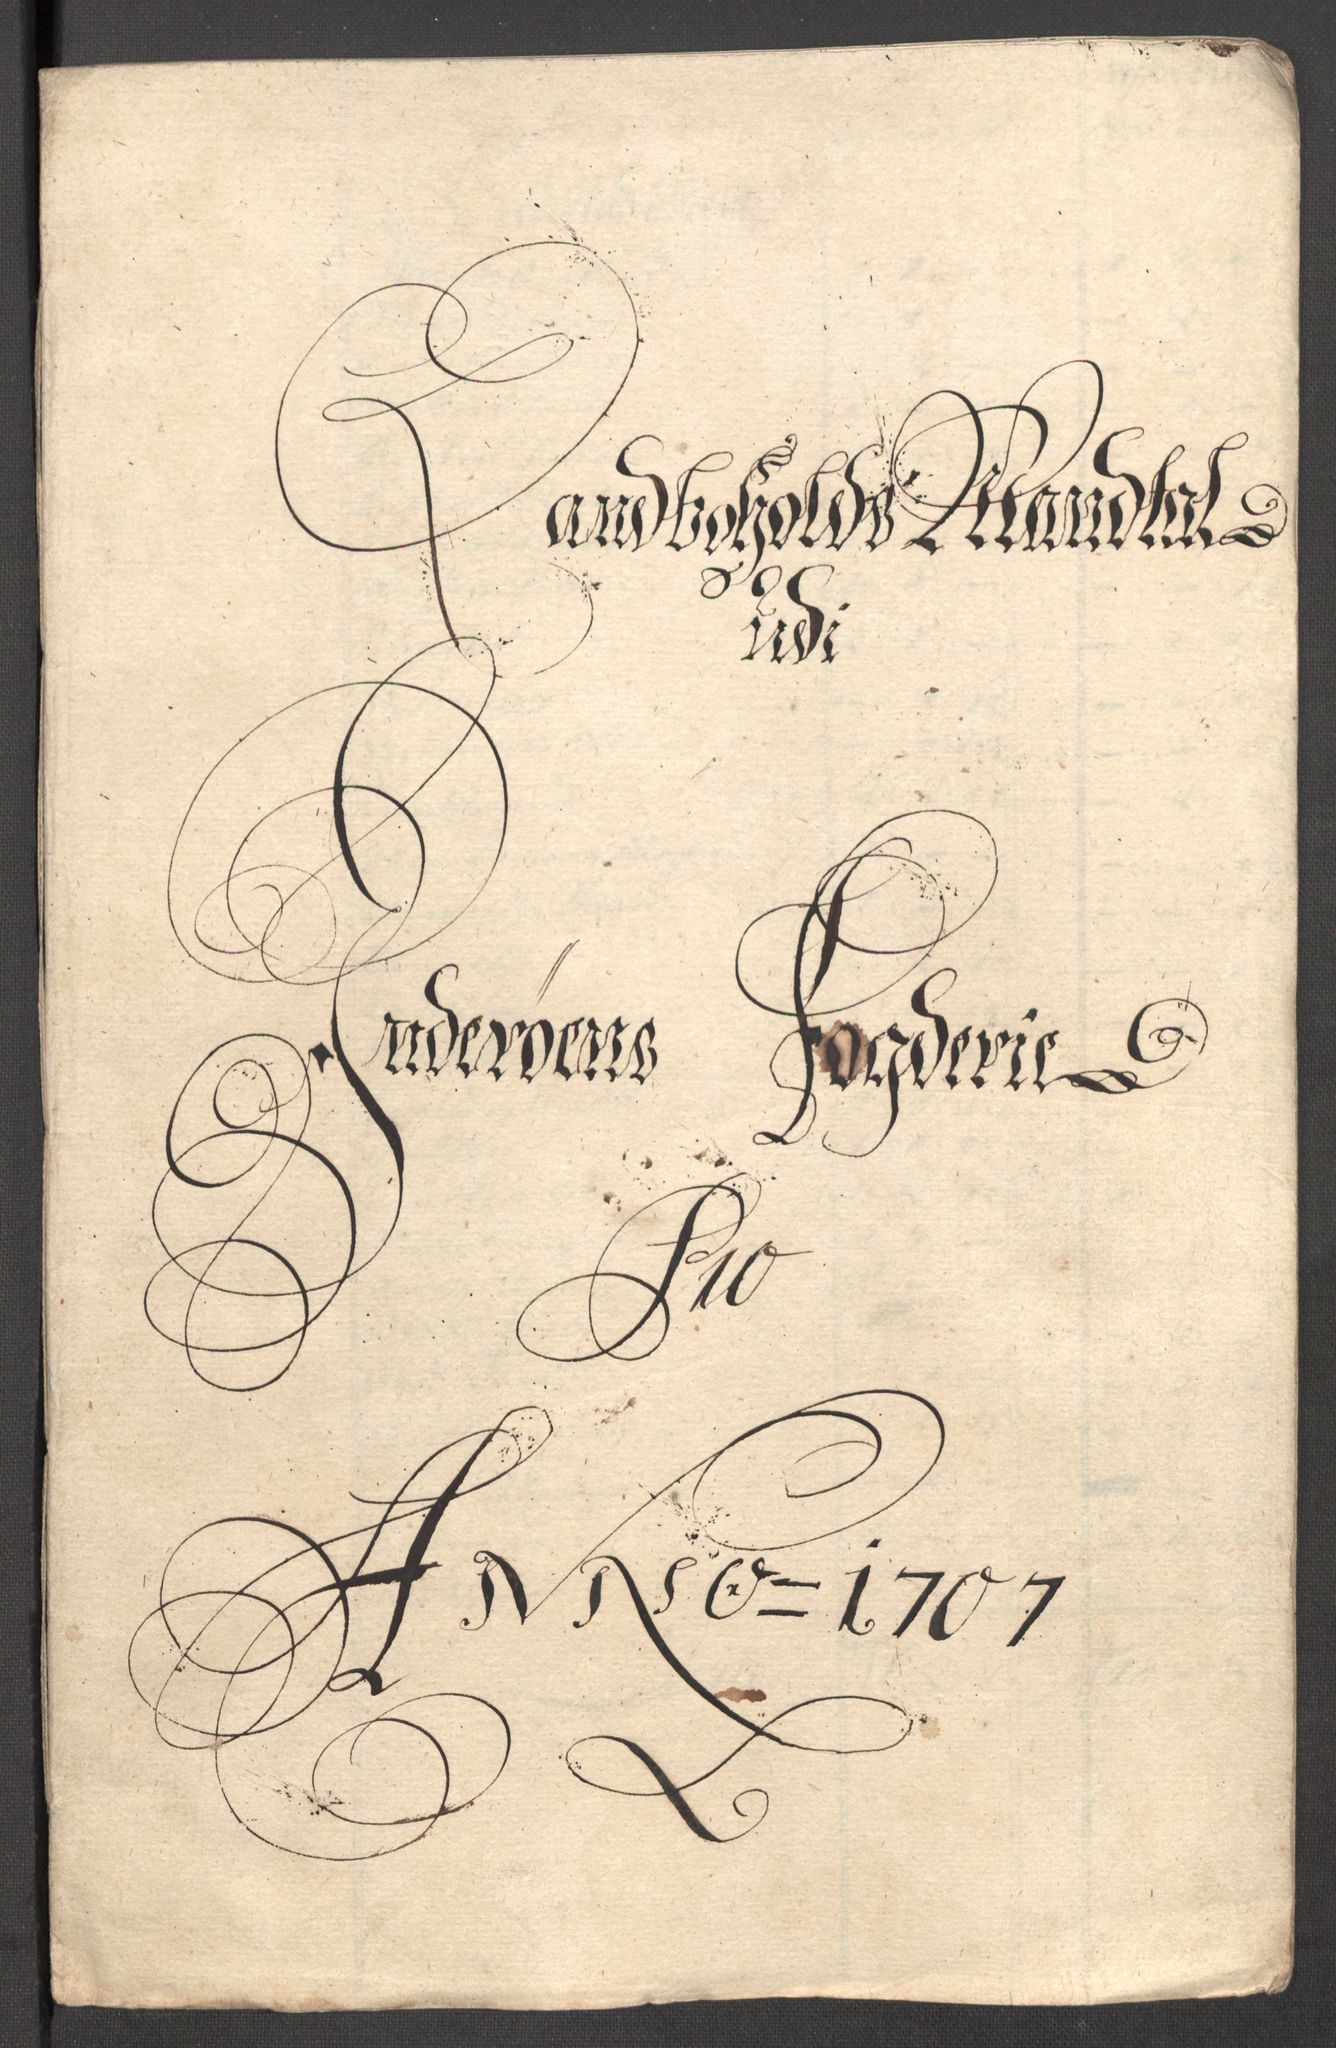 Landboholds Mandtal
udi
Inderøens Fogderie
Pro
ANNO = 1707